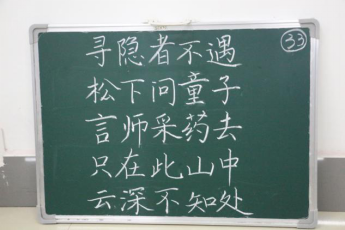 寻隐者不遇
33
松下问童子
言师采药去
只在此山中
云深不知处